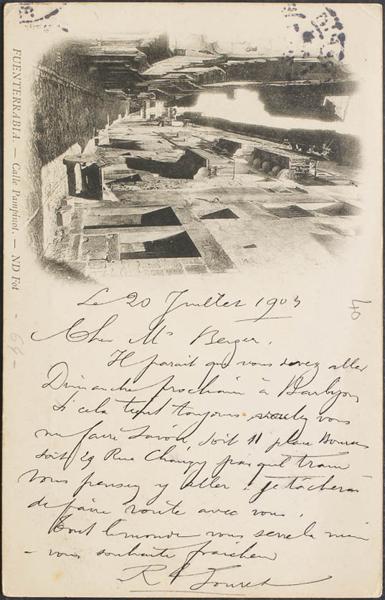 FUENTERRABIA. — Calle Pampinot. — ND Fot
Le 20 Juillet 1903
Cher Mr Berger,
Il parait que vous devez aller
Dimanche prochain à
Si cela tient toujours voulez vous
me faire savoir soit 11 place
soit 29 Rue par quel train
vous pensez y aller. je tâcherai
de faire route avec vous.
Tout le monde vous serre la main
vous souhaite
R
40